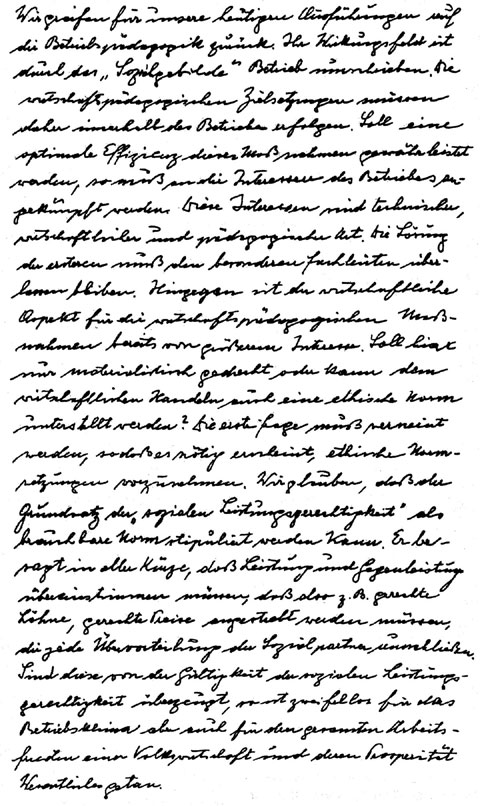 Wir greifen für unsere heutigen Ausführungen auf
die Betriebspädagogik zurück. Ihr Wirkungsfeld ist
durch das „Sozialgebilde" Betrieb umschrieben. Die
wirtschaftspädagogischen Zielsetzungen müssen
daher innerhalb des Betriebes erfolgen. Soll eine
optimale Effizienz dieser Maßnahmen gewährleistet
werden, so muß an die Interessen des Betriebes an-
geknüpft werden. Diese Interessen sind technischer,
wirtschaftlicher und pädagogischer Art. Die Lösung
der ersteren muß den besonderen Fachleuten über-
lassen bleiben. Hingegen ist der wirtschaftliche
Aspekt für die wirtschaftspädagogischen Maß-
nahmen bereits von größerem Interesse. Soll hier
nur materialistisch gedacht oder kann dem
wirtschaftlichen Handeln auch eine ethische Norm
unterstellt werden? Die erste Frage muß verneint
werden, sodaß es nötig erscheint, ethische Norm-
setzungen vorzunehmen. Wir glauben, daß der
Grundsatz der „sozialen Leistungsgerechtigkeit" als
brauchbare Norm stipuliert werden kann. Er be-
sagt in aller Kürze, daß Leistung und Gegenleistung
übereinstimmen müssen, daß also z. B. gerechte
Löhne, gerechte Preise angestrebt werden müssen,
die jede Übervorteilung der Sozialpartner ausschließen.
Sind diese von der Gültigkeit der sozialen Leistungs-
gerechtigkeit überzeugt, so ist zweifellos für das
Betriebsklima aber auch für den gesamten Arbeits-
frieden einer Volkswirtschaft und deren Prosperität
Wesentliches getan.